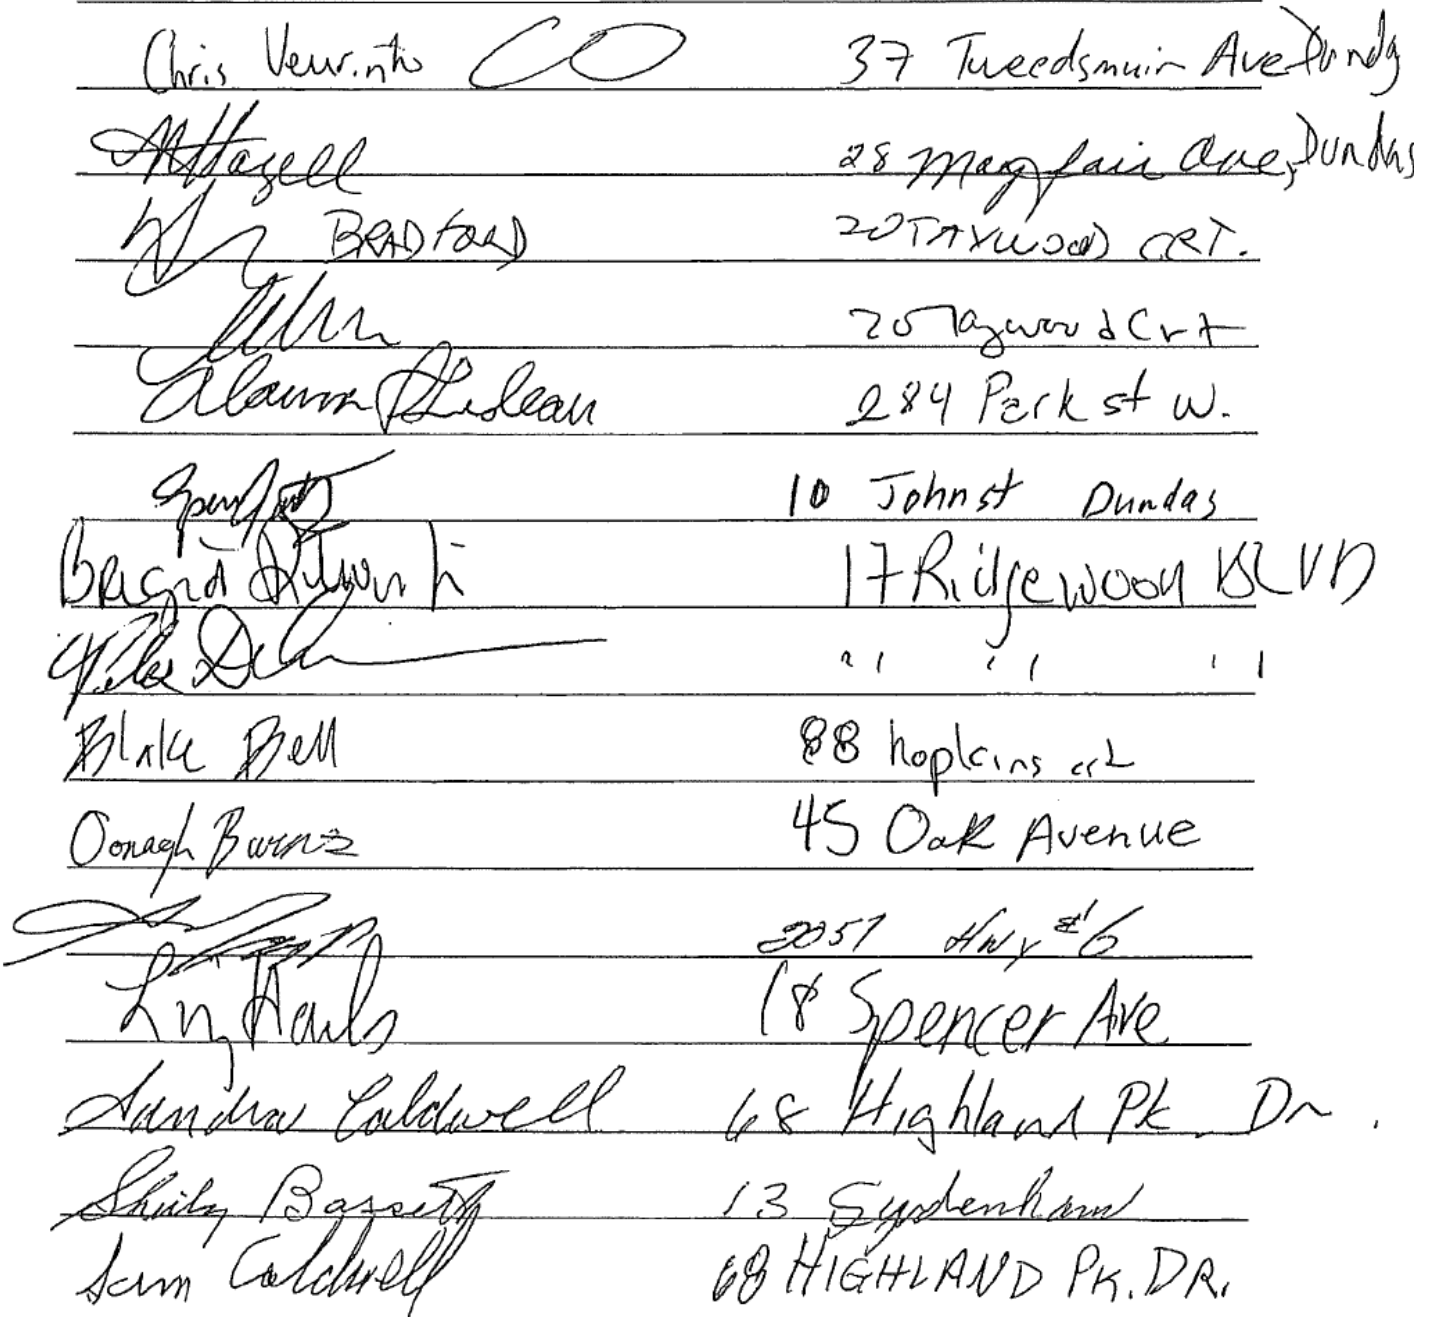 Chris 37 Tweedsmuir Ave Dundas
28 Mayfair Ave, Dundas
BRADFORD 20 TAYWOOD CRT.
20 Taywood Crt
284 Park st W.
10 John st Dundas
17 Ridgewood BLVD
" " "
Blake Bell 88 hopkins crt
Oonagh Burns 45 Oak Avenue
2057 Hwy #6
18 Spencer Ave
Sandra Caldwell 68 Highland Pk Dr.
Shirley Bassett 13 Sydenham
Sam Caldwell 68 HIGHLAND PK. DR.